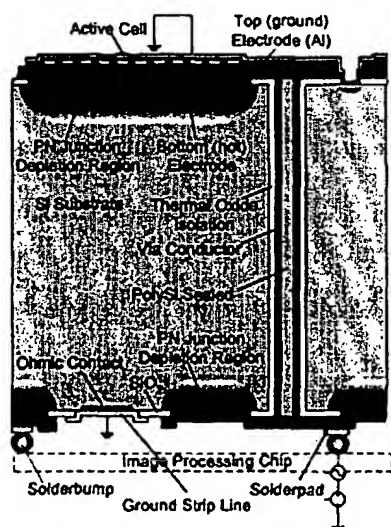 Active Cell
Top (ground)
Electrode (Al)
PN Junction
Depletion Region
Bottom (hot)
Electrode
Si Substrate
Thermal Oxide
Isolation
Via Conductor
PolySi Sealed
PN Junction
Depletion Region
Ohmic Contact
SiO
Image Processing Chip
Solderbump
Solderpad
Ground Strip Line